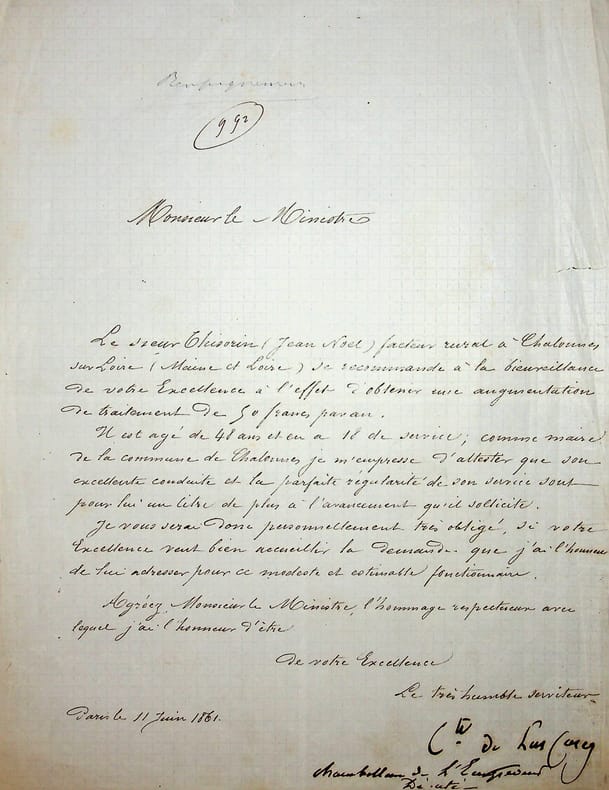 992
Monsieur le Ministre
Le sieur Thisorin (Jean Noel) facteur rural à Chalonnes
sur Loire (Maine et Loire) se recommande à la bienveillance
de votre Excellence à l'effet d'obtenir une augmentation
de traitement de 50 francs par an.
Il est agé de 48 ans et en a 18 de service; comme maire
de la commune de Chalonnes je m'empresse d'attester que son
excellente conduite et la parfaite régularité de son service sont
pour lui un titre de plus à l'avancement qu'il sollicite.
Je vous serai donc personnellement très obligé, si votre
Excellence veut bien accueillir la demande que j'ai l'honneur
de lui adresser pour ce modeste et estimable fonctionnaire.
Agréez, Monsieur le Ministre, l'hommage respectueux avec
lequel j'ai l'honneur d'être
de votre Excellence
Le très humble serviteur
Paris le 11 Juin 1861.
Cte de Las Cases
chambellan de L'Empereur
Député